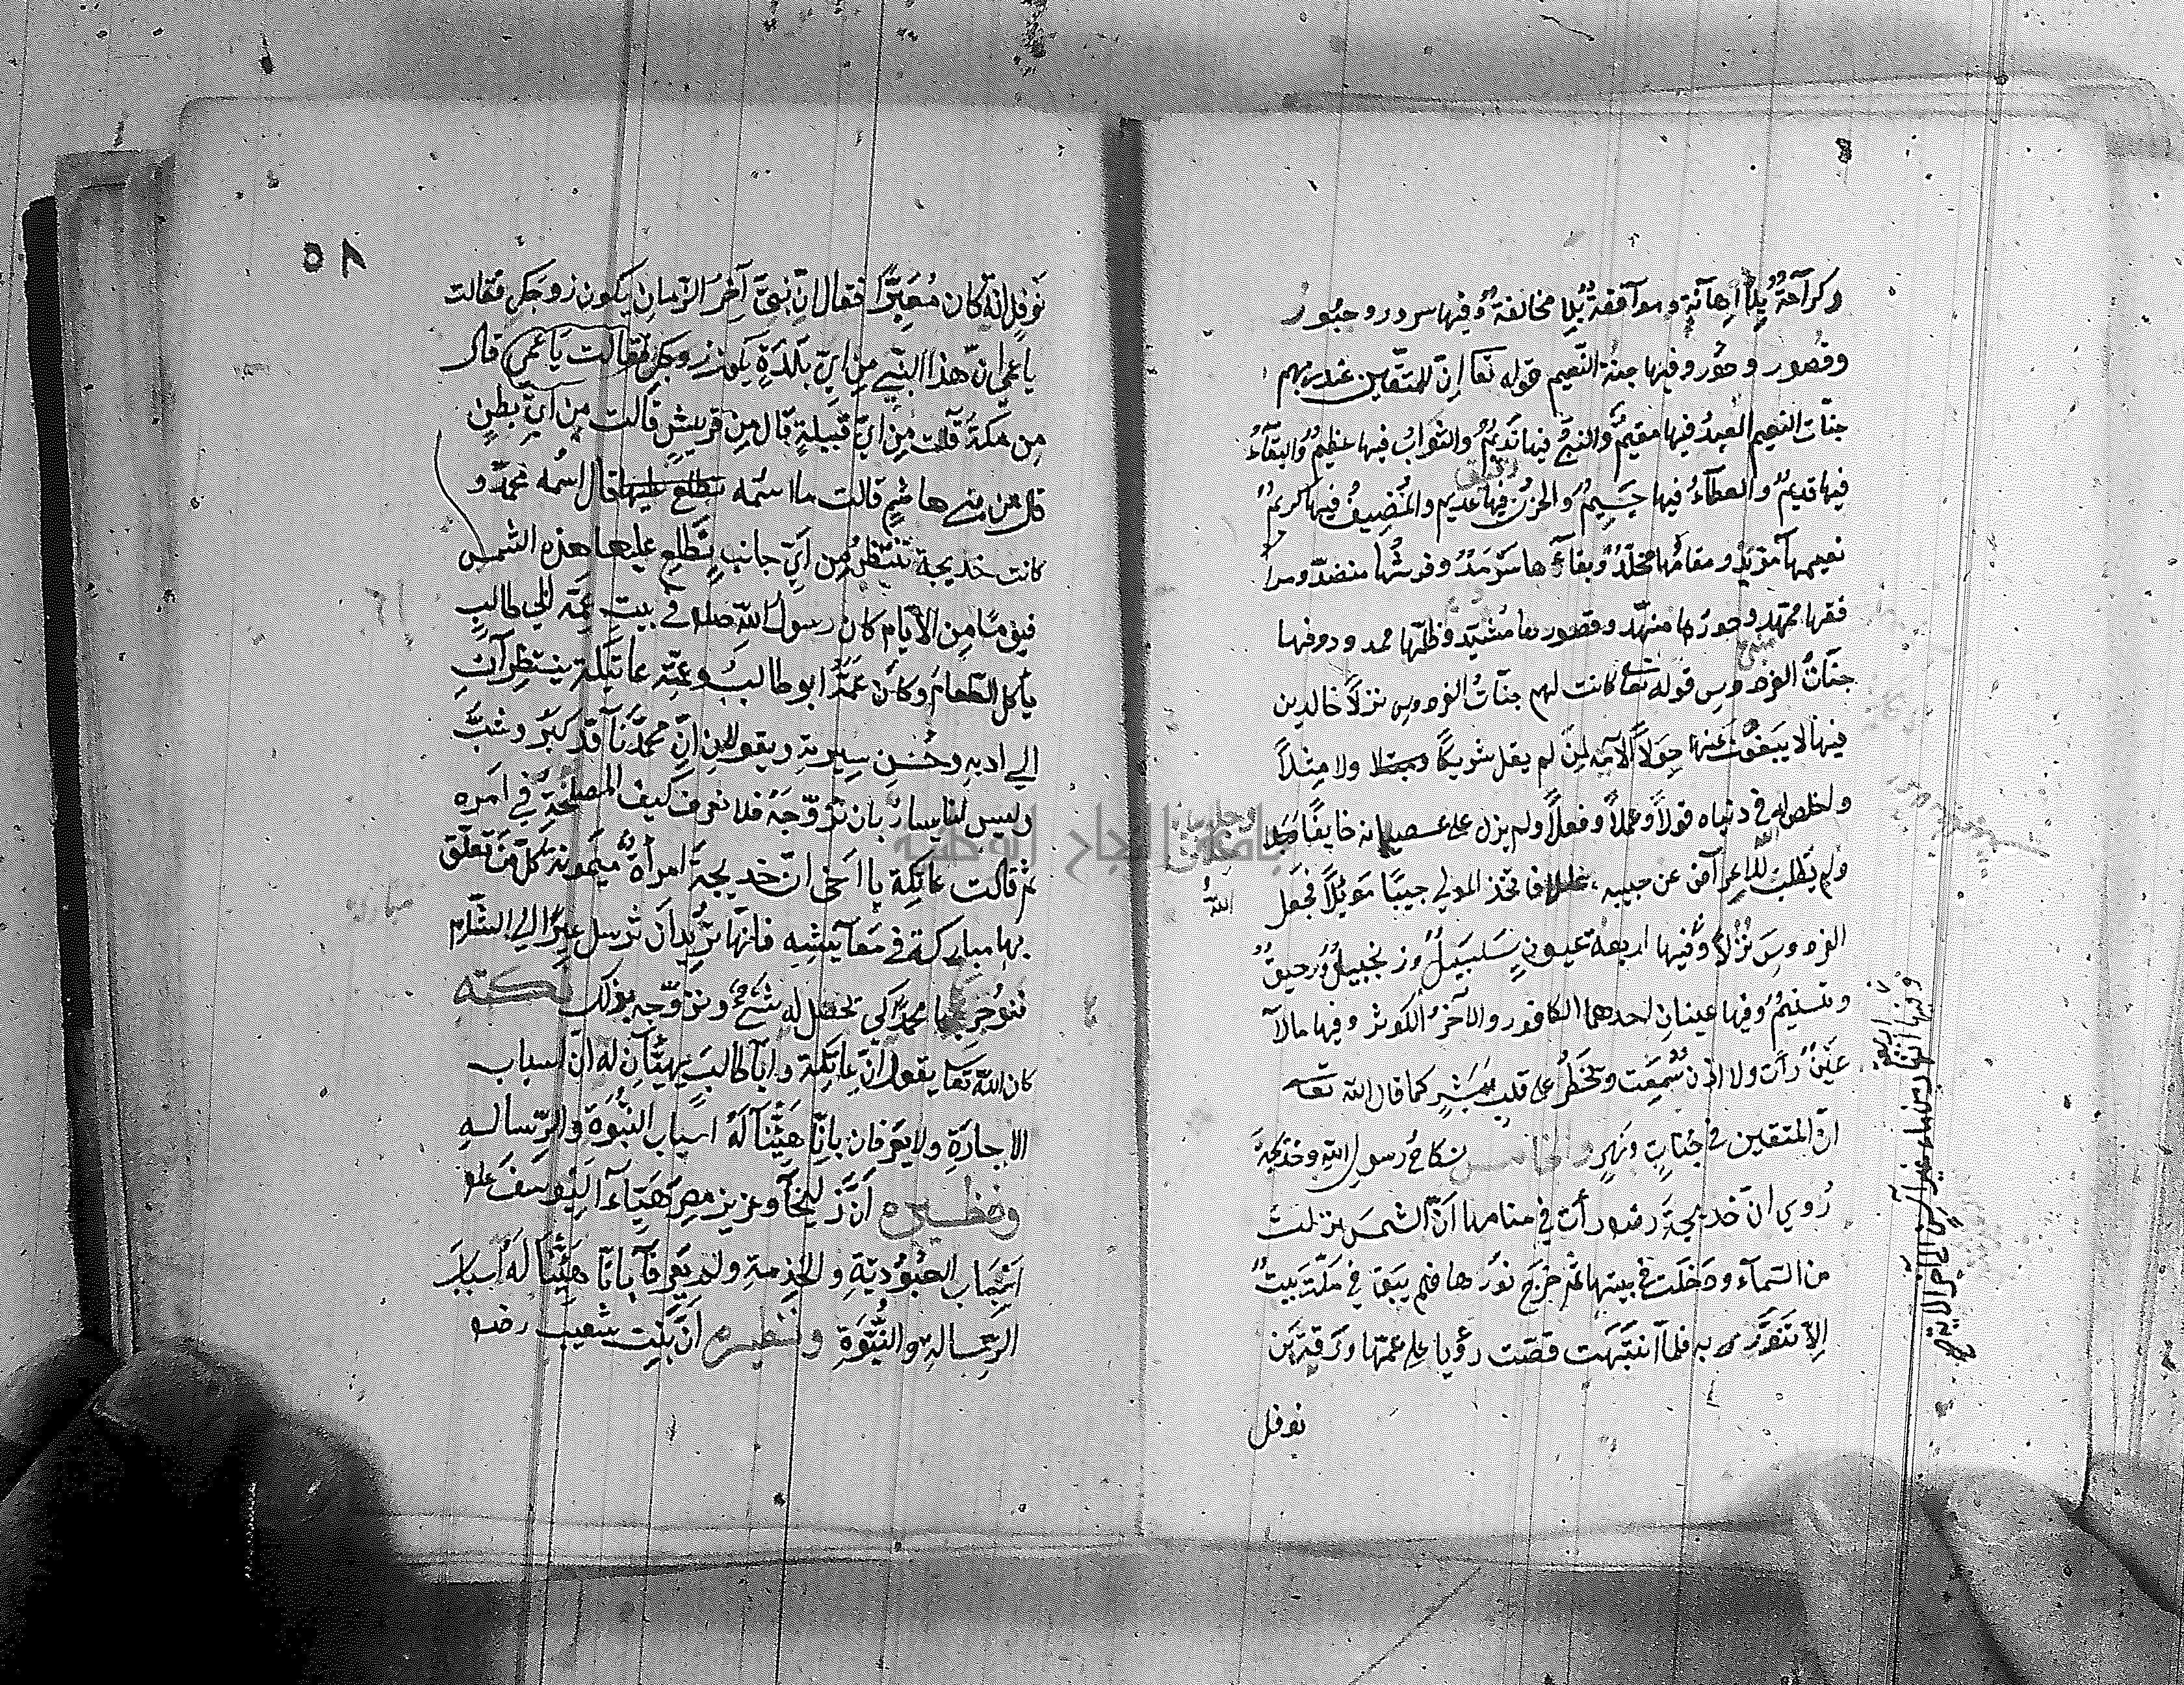 وكرامة بلا اهانة وموافقة بلا مخالفة وفيها سرور وحبور
وقصور وحور وفيها جنة النعيم قوله تعا ان للمتقين عند ربهم
جنات النعيم العبد فيها مقيم والنبي فيها نديم والثواب فيها عظيم والبقاء
فيها قديم والعطاء فيها جسيم والحزن فيها عديم والمضيف فيها كريم
نعيمها مؤبد ومقامها مخلد وبقاءها سرمد وفرشها منضد ومرا
فقها ممهد وحورها منهد وقصورها مشيد وظلها ممدود وفيها
جنات الفردوس قوله تعا كانت لهم جنات الفردوس نزلا خالدين
فيها لا يبغون عنها حولا الآية لمن لم يقل شريكا ولا مثلا
واخلص له في دنياه قولا وعملا وفعلا ولم يزل على عصيانه خايفا وجلا
ولم يطلب للاعراض عن حبيبه فاتخذ المولى حبيبا موئلا فجعل
الله
الفردوس نزلا وفيها اربعة عيون سلسبيل وزنجبيل ورحيق
وتسنيم وفيها عينان احدهما الكافور والآخر الكوثر وفيها مالا
عين رأت ولا اذن سمعت وخطر على قلب بشر كما قال الله تعا
ان المتقين في جنات ونهر والخامس نكاح رسول الله وخديجة
روي ان خديجة رضه رأت في منامها ان الشمس نزلت
من السماء ودخلت في بيتها ثم خرج نورها فلم يبق في مكة بيت
الا تنور به فلما انتبهت قصت رؤيا على عمها ورقة بن
نوفل
وفيها انهار من ماء غير آسن الى آخر الاية
اربع
٥٨
نوفل انه كان معبرا فقال ان نبي آخر الزمان يكون زوجك فقالت
يا عمي ان هذا النبي من اي بلدة يكون زوجك فقالت يا عمي قال
من مكة قالت من اي قبيلة قال من قريش قالت من اي بطن
قال من بني هاشم قالت ما اسمه تطلع عليها قال اسمه محمد و
كانت خديجة تنتظر من اي جانب تطلع عليها هذه الشمس
فيوما من الايام كان رسول الله صلم في بيت عمه ابي طالب
يأكل الطعام وكان عمه ابو طالب وعمته عاتكة ينتظران
الى ادبه وحسن سيرته ويقولان ان محمدنا قد كبر وشب
وليس لنا يسار بان نزوجه فلا نعرف كيف المصلحة في امره
ثم قالت عاتكة يا اخي ان خديجة امرأة ميمونة كل من تعلق
بها مبارك في معايشه فانها تريد ان ترسل عيرا الى الشام
فنوجر محمد كي تحصل له شئ ونزوجه بذلك نكته
كان الله تعا يقول ان عاتكة وابا طالب يهيئان له اسباب
الاجارة ولا يعرفان بانا هيئنا له اسباب النبوة والرسالة
ونظيره ان زليخا وعزيز مصر هيئا ليوسف علم
اسباب العبودية والخدمة ولم يعرفا بانا هيئنا له اسباب
الرسالة والنبوة ونظيره ان بنت شعيب رضه